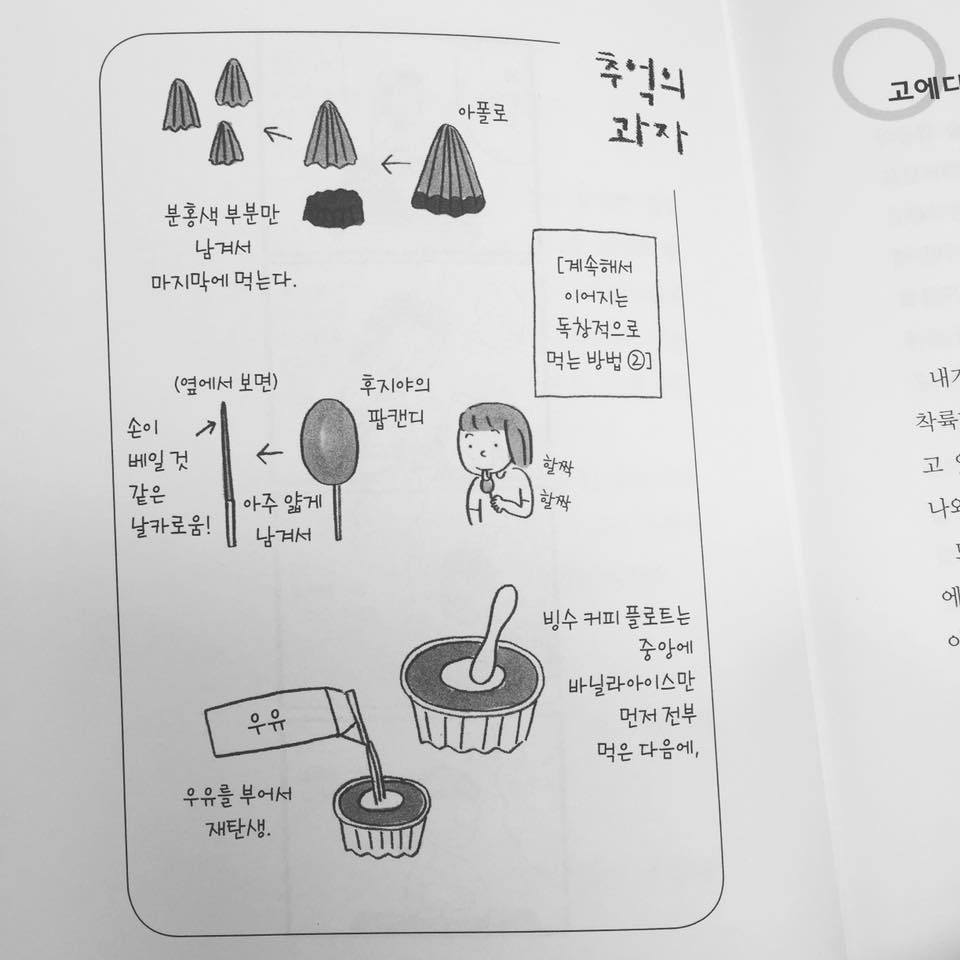 추억의
과자
아폴로
분홍색 부분만
남겨서
마지막에 먹는다.
[계속해서
이어지는
독창적으로
먹는 방법 ②]
후지야의
팝캔디
할짝
할짝
아주 얇게
남겨서
(옆에서 보면)
손이
베일 것
같은
날카로움!
빙수 커피 플로트는
중앙에
바닐라아이스만
먼저 전부
먹은 다음에,
우유
우유를 부어서
재탄생.
고에디
내가
고
나오
에